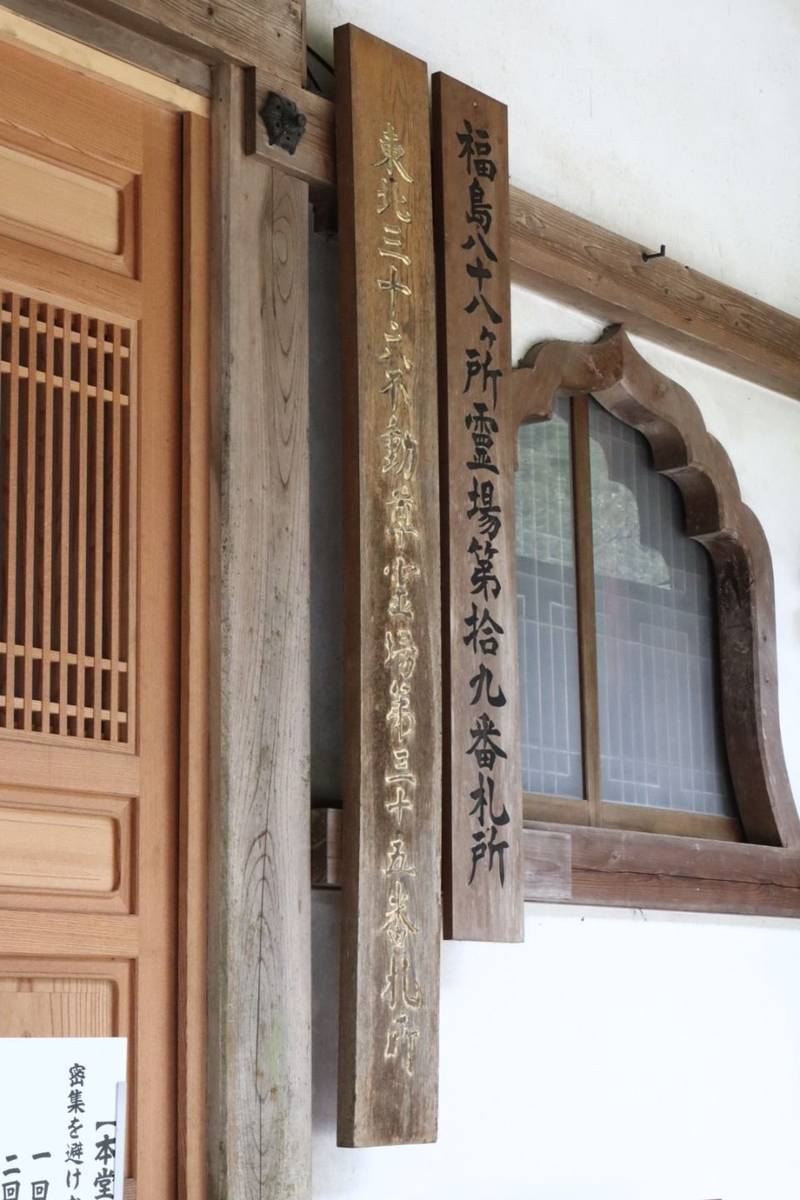 福島八十八ヶ所霊場第拾九番札所
東北三十六不動尊霊場第三十五番札所
【本堂
密集を避け
一回
二回